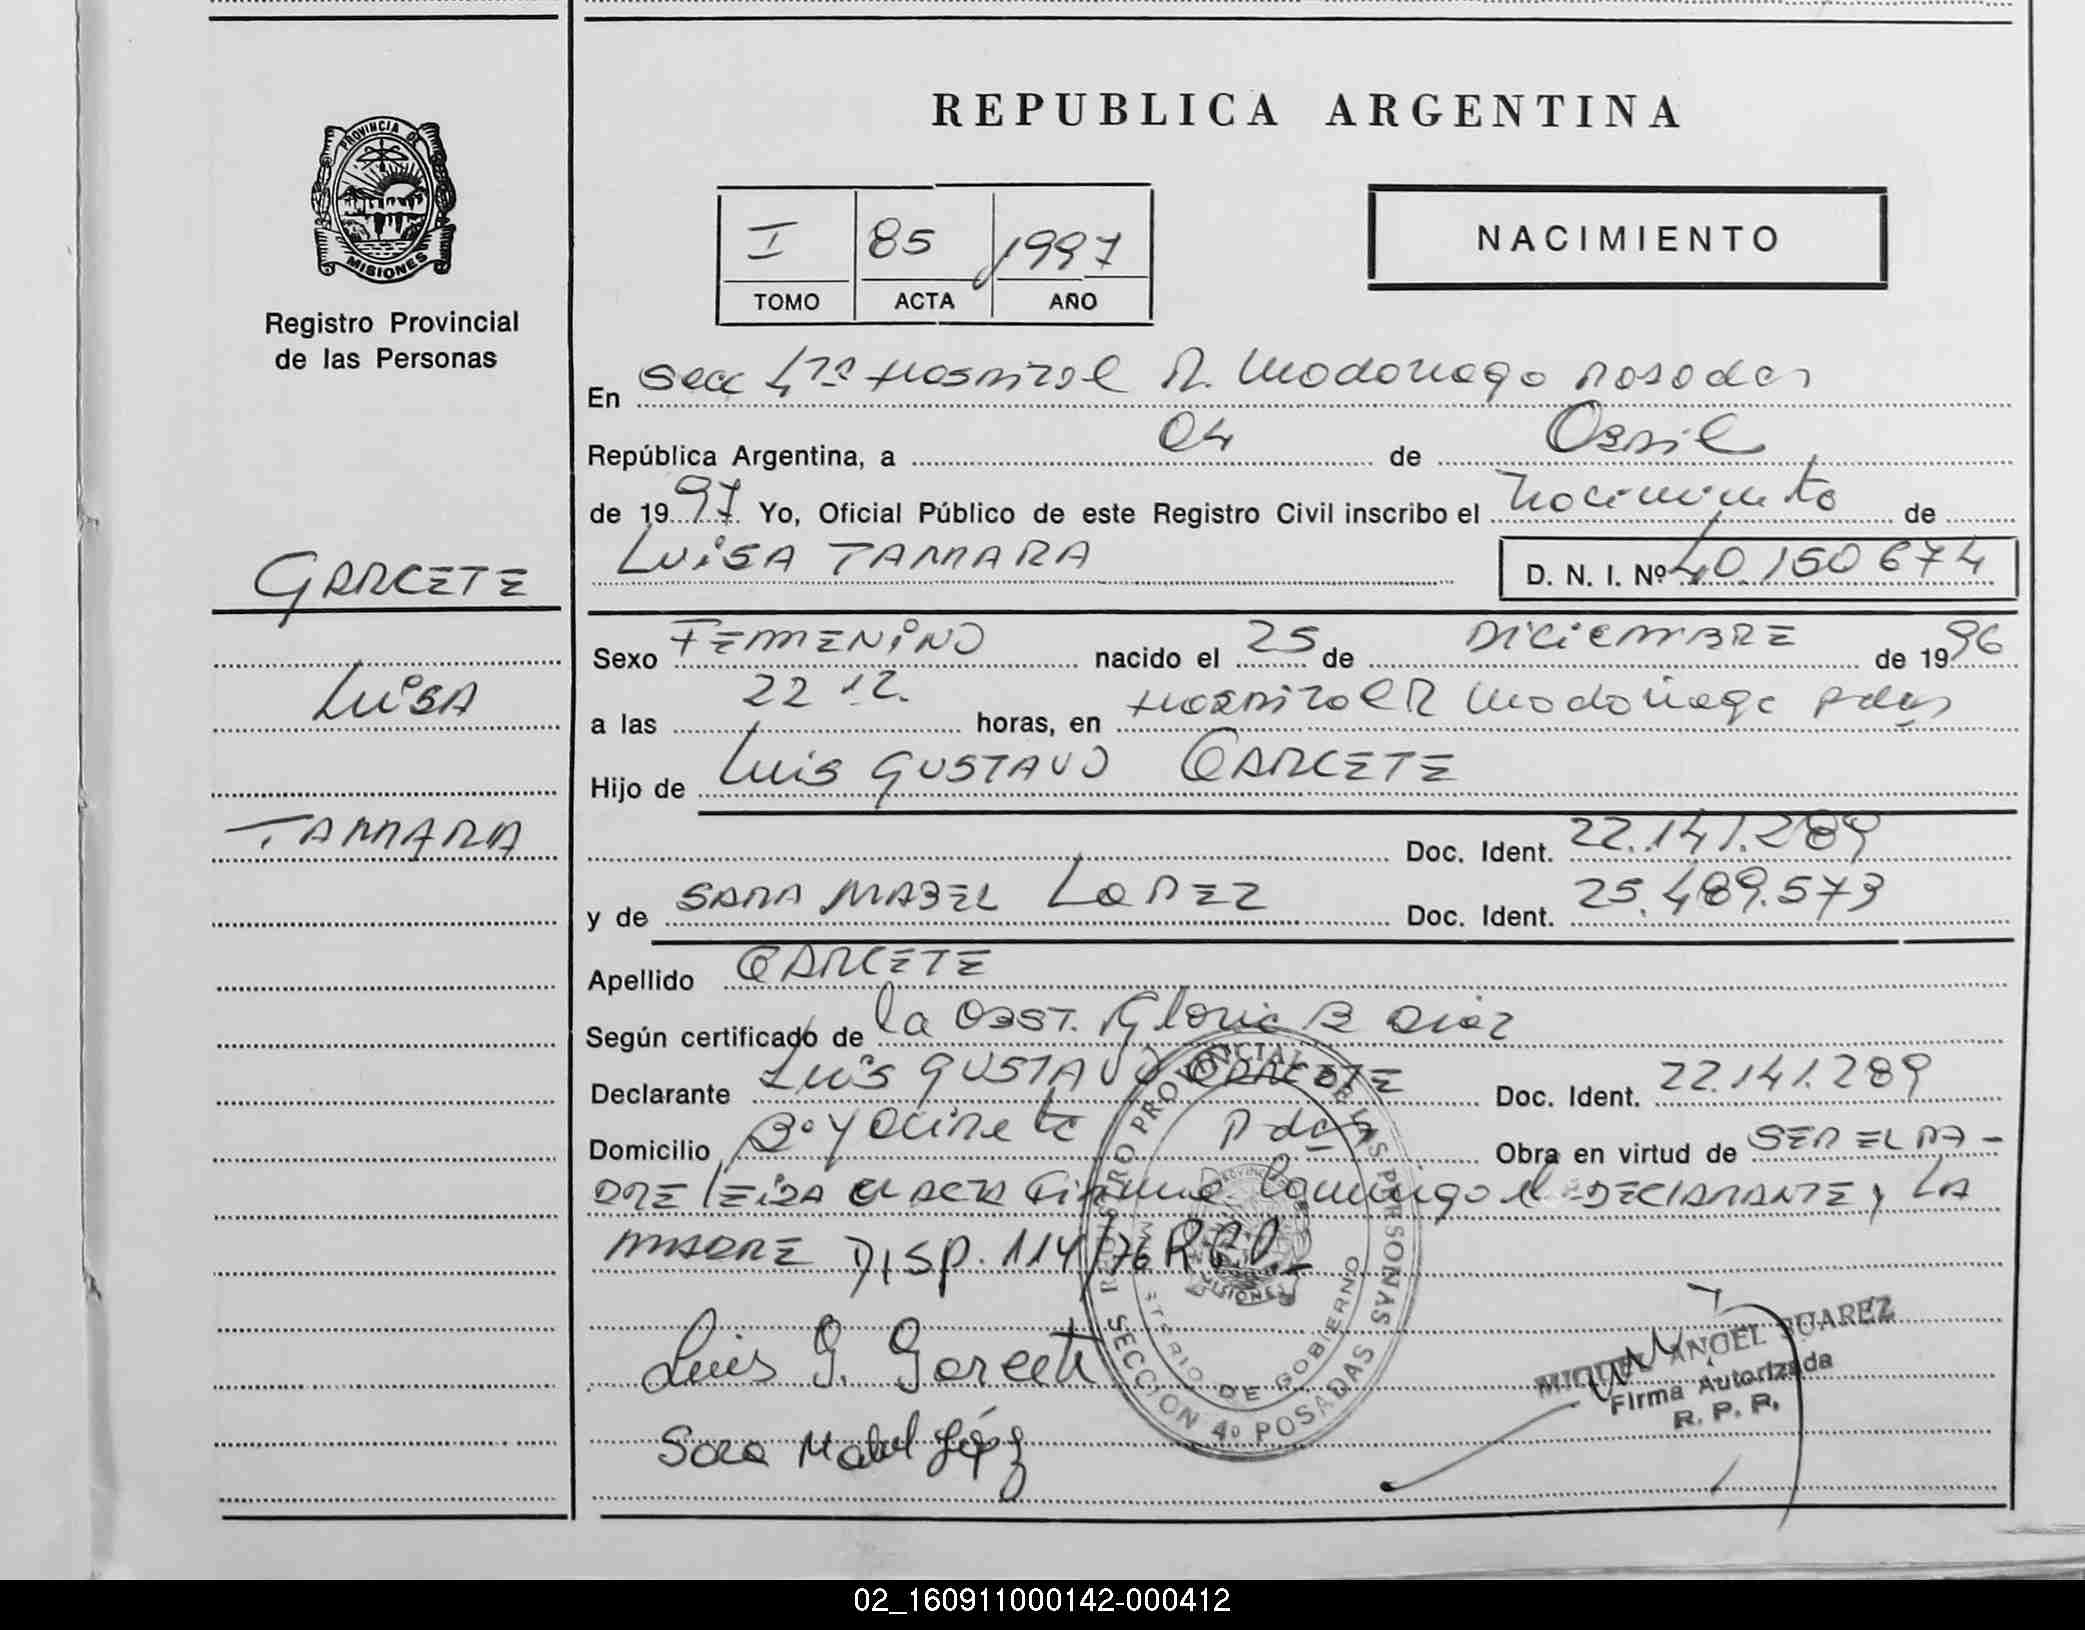 REPUBLICA ARGENTINA
PROVINCIA DE
MISIONES
Registro Provincial
de las Personas
NACIMIENTO
I 85 1997
TOMO ACTA AÑO
En Secc 4ta Hospital R. Madariaga Posadas
República Argentina, a 04 de Abril
de 1997 Yo, Oficial Público de este Registro Civil inscribo el Nacimiento de
LUISA TAMARA D. N. I. Nº 40.150674
GARCETE
LUISA
TAMARA
Sexo FEMENINO nacido el 25 de DICIEMBRE de 1996
a las 22 12. horas, en Hospital R Madariaga Pdas
Hijo de Luis GUSTAVO GARCETE
Doc. Ident. 22.141.289
y de SARA MABEL LOPEZ Doc. Ident. 25.489.573
Apellido GARCETE
Según certificado de la OBST. Gloria B Diaz
Declarante LUIS GUSTAVO GARCETE Doc. Ident. 22.141.289
Domicilio Bº Yacireta Pdas Obra en virtud de SER EL PA-
DRE LEIDA el ACTA Firma conmigo el DECLARANTE y LA
MADRE DISP. 114/76 R
REGISTRO PROVINCIAL DE LAS PERSONAS
MINISTERIO DE GOBIERNO
SECCION 4º POSADAS
MISIONES
Luis G. Garcete
MIGUEL ANGEL SUAREZ
Firma Autorizada
R. P. P.
Sara Mabel López
02_160911000142-000412